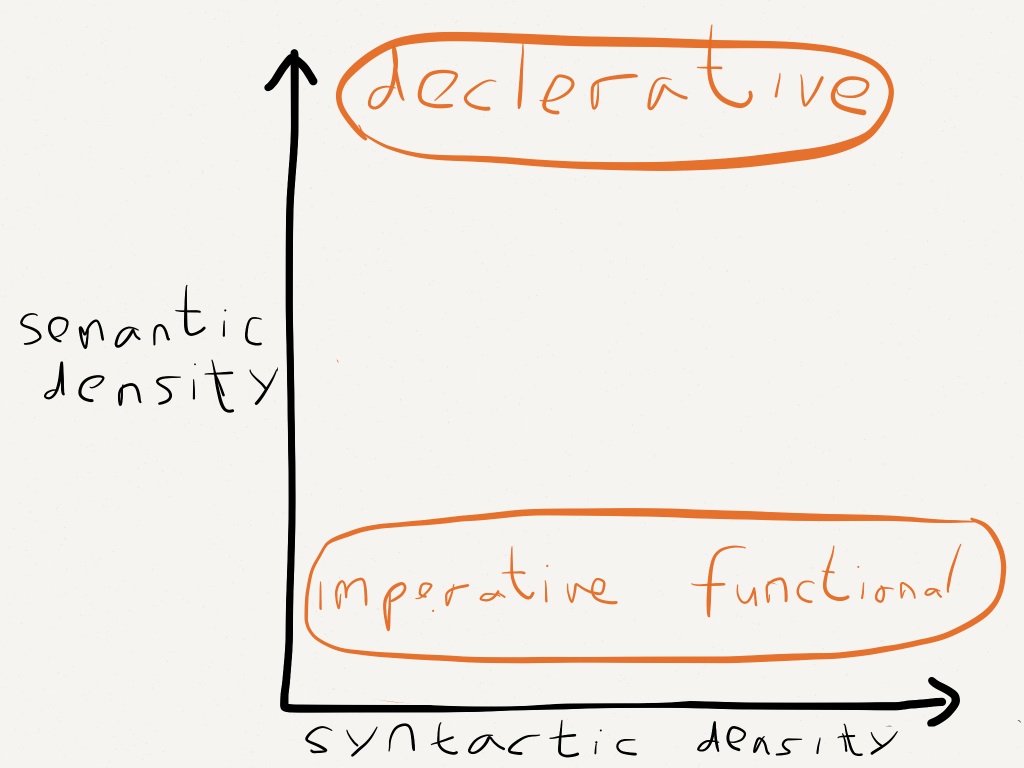 declerative
semantic
density
imperative functional
syntactic density